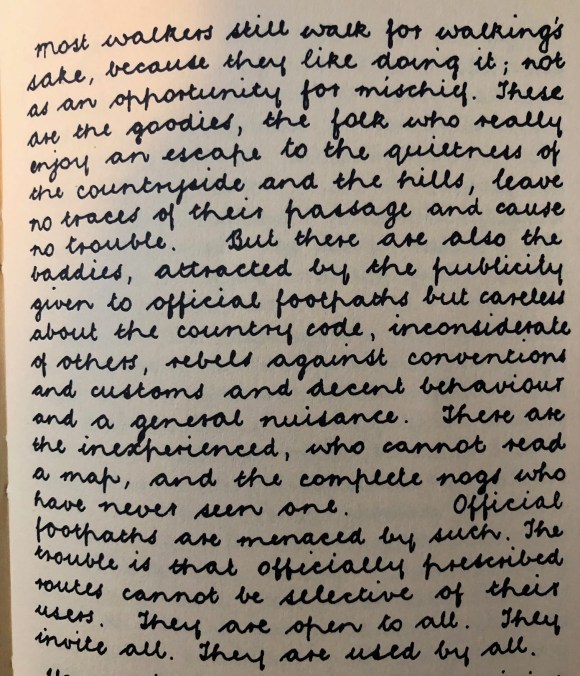 most walkers still walk for walking's
sake, because they like doing it; not
as an opportunity for mischief. These
are the goodies, the folk who really
enjoy an escape to the quietness of
the countryside and the hills, leave
no traces of their passage and cause
no trouble. But there are also the
baddies, attracted by the publicity
given to official footpaths but careless
about the country code, inconsiderate
of others, rebels against conventions
and customs and decent behaviour
and a general nuisance. There are
the inexperienced, who cannot read
a map, and the complete nogs who
have never seen one. Official
footpaths are menaced by such. The
trouble is that officially prescribed
routes cannot be selective of their
users. They are open to all. They
invite all. They are used by all.